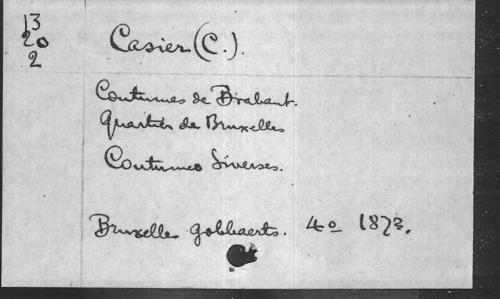 13
20
2
Casier (C.).
Coutumes de Brabant.
Quartier de Bruxelles
Coutumes diverses.
Bruxelles Gobbaerts. 4o 1873.